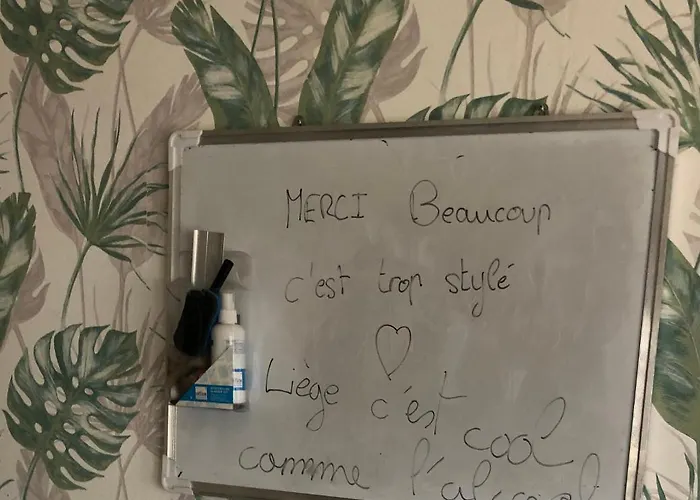 MERCI Beaucoup
c'est trop stylé
Liège c'est cool
comme l'alcool